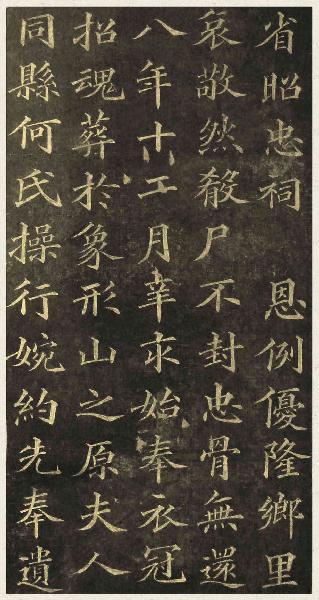 省昭忠祠 恩例優隆鄉里
哀敬然殽尸不封忠骨無還
八年十二月辛亥始奉衣冠
招魂葬於象形山之原夫人
同縣何氏操行婉約先奉遺